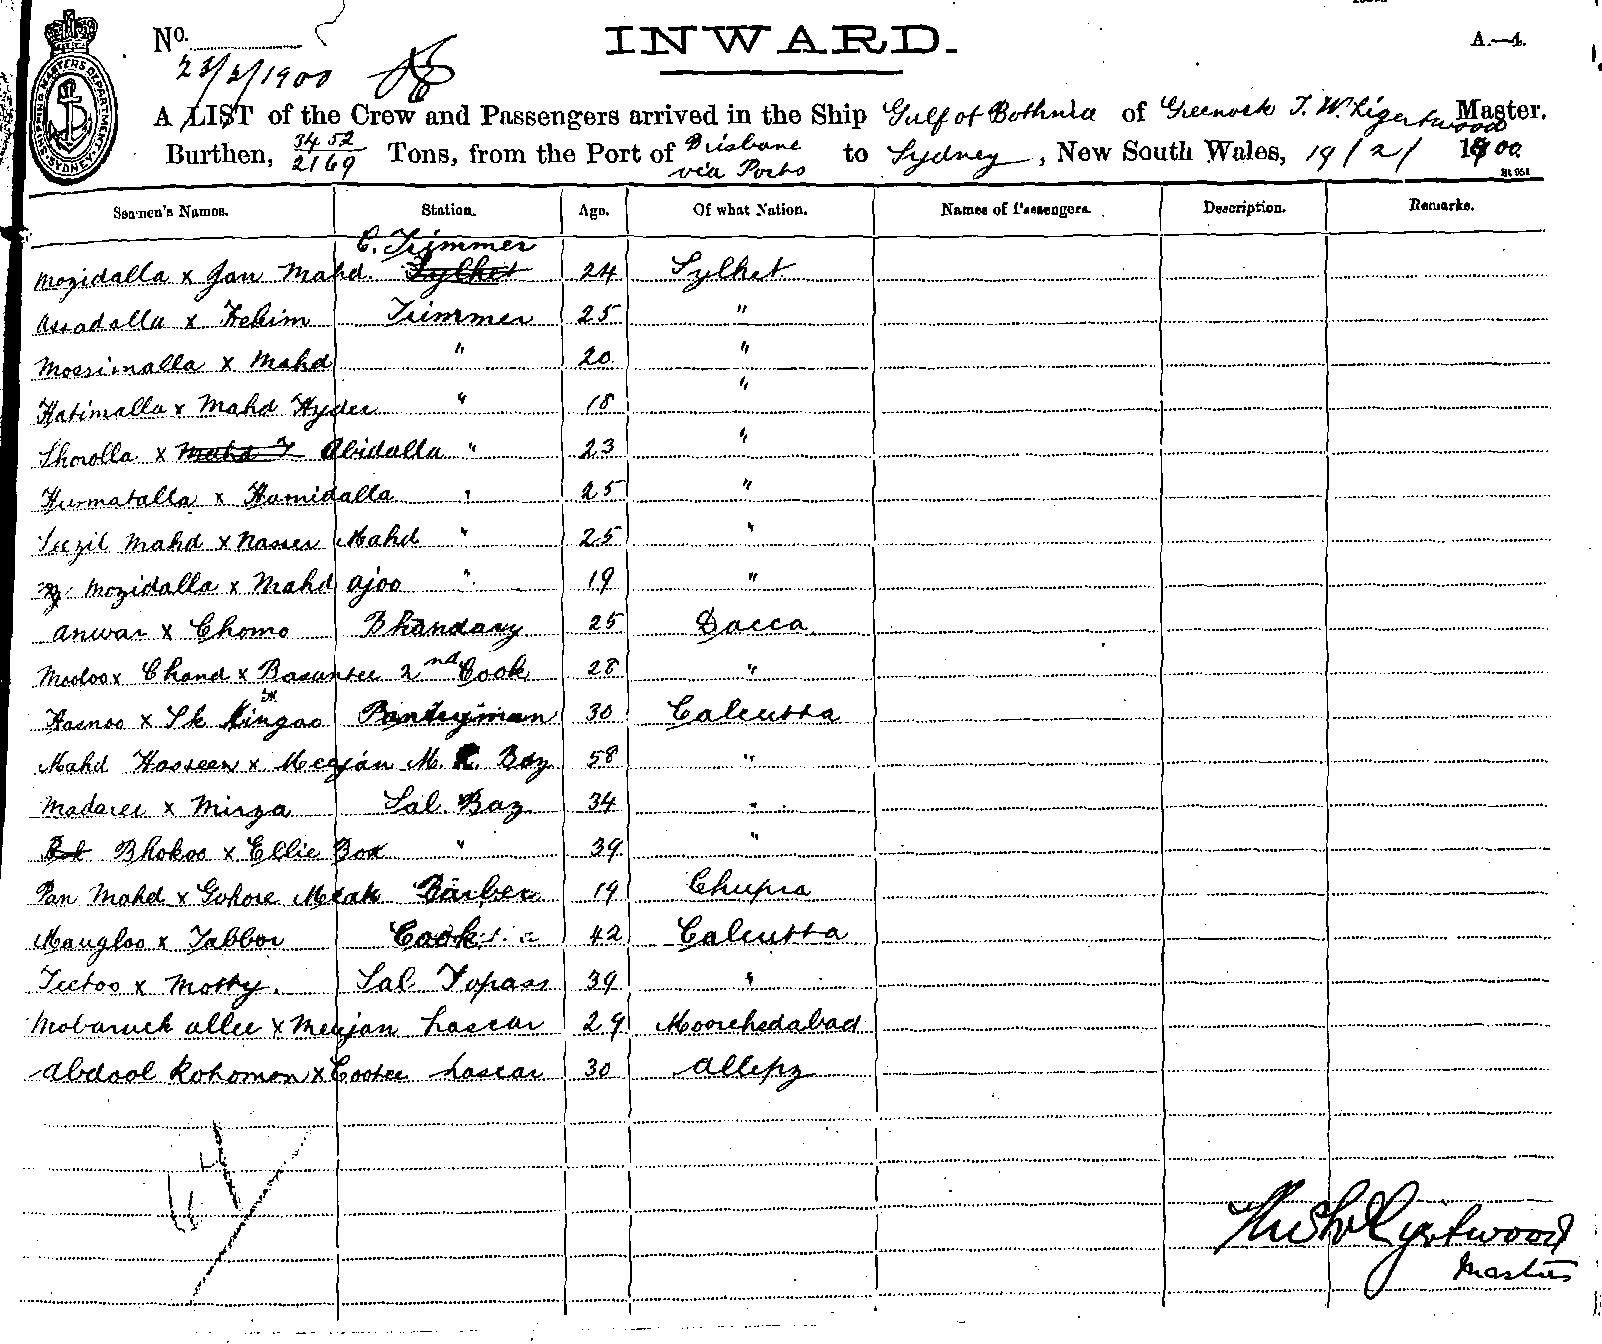 No.
23/2/1900
INWARD.
A.—4.
A LIST of the Crew and Passengers arrived in the Ship Gulf of Bothnia of Greenock T. W. Ligertwood Master.
Burthen, 3452/2169 Tons, from the Port of Brisbane via Ports to Sydney, New South Wales, 19/2/1900
Seamen's Names. Station. Age. Of what Nation. Names of Passengers. Description. Remarks.
C. Trimmer
Mozidalla x Jan Mahd. Sylhet 24 Sylhet
Assadalla x Hekim Trimmer 25 "
Moesimalla x Mahd " 20 "
Hatimalla x Mahd Hyder " 18 "
Shorolla x Mahd Y Abidalla " 23 "
Hurmatalla x Hamidalla " 25 "
Seezil Mahd x Nasser Mahd " 25 "
Mozidalla x Mahd Ajoo " 19 "
Anwar x Chomo Bhandary 25 Dacca
Medoo x Chand x Basuntee 2nd Cook 28 "
Hasnoo x Sk Lingoo Pantryman 30 Calcutta
Mahd Hosseen x Meejan M. R. Boy 58 "
Madaree x Mirza Sal. Boy 34 "
Bhokoo x Ellie Box " 39 "
Pan Mahd x Gohore Meak Barber 19 Chupra
Maugloo x Jabbor Cook 42 Calcutta
Teetoo x Motty. Sal Topass 39 "
Mobaruck Allee x Meejan Lascar 29 Moorshedabad
Abdool Rohomon x Cootee Lascar 30 Allepy
64
Thos W Ligertwood
Master